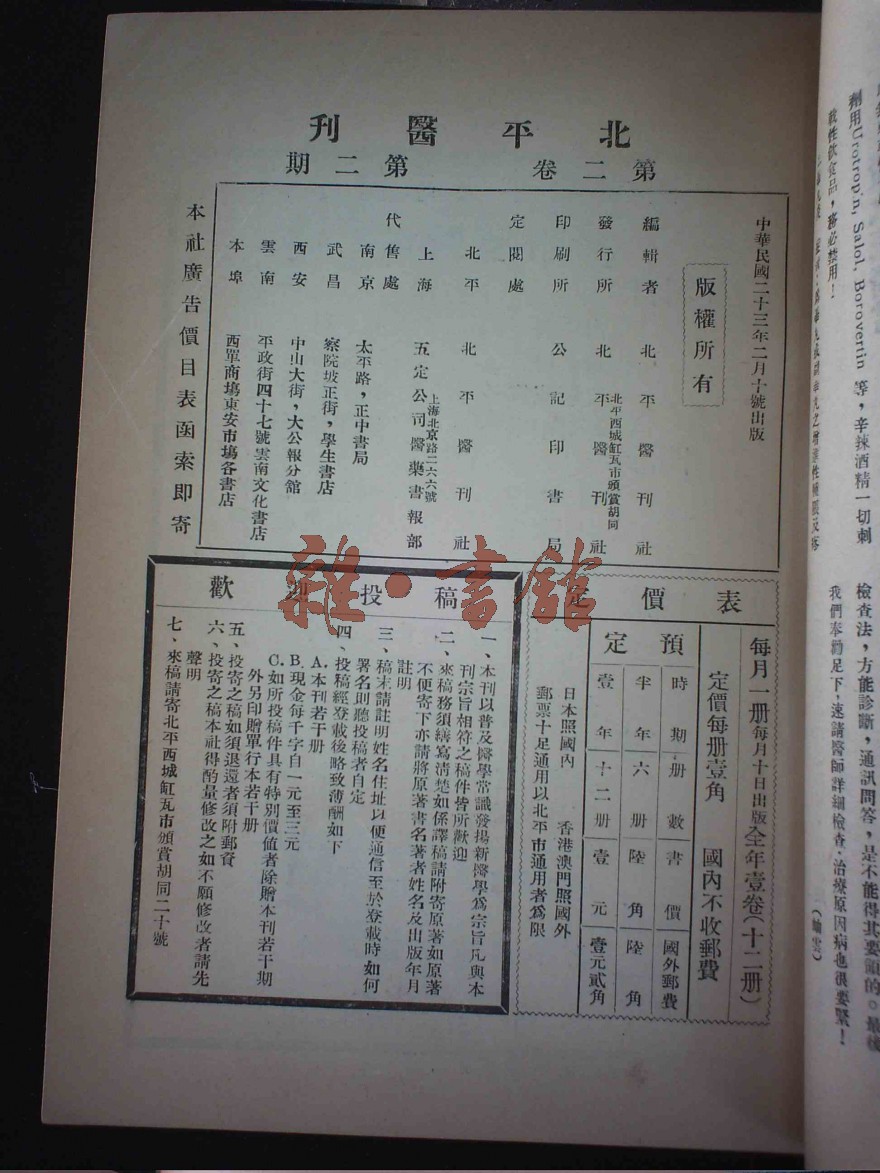 北平醫刊
第二卷 第二期
中華民國二十三年二月十號出版
版權所有
編輯者 北平醫刊社
發行所 北平醫刊社
北平西城缸瓦市頒賞胡同
印刷所 公記印書局
定閱處
北平 北平醫刊社
上海 五定公司醫藥書報部
上海北京路二六六號
代售處
南京 太平路，正中書局
武昌 察院坡正街，學生書店
西安 中山大街，大公報分館
雲南 平政街四十七號雲南文化書店
本埠 西單商塲東安市塲各書店
本社廣告價目表函索即寄
定價表
每月一册每月十日出版全年壹卷(十二册)
定價每册壹角 國內不收郵費
預定
時期 册數 書價 國外郵費
半年 六册 陸角 陸角
壹年 十二册 壹元 壹元貳角
日本照國內 香港澳門照國外
郵票十足通用以北平市通用者爲限
歡迎投稿
一、本刊以普及醫學常識發揚新醫學爲宗旨凡與本
刊宗旨相符之稿件皆所歡迎
二、來稿務須繕寫清楚如係譯稿請附寄原著如原著
不便寄下亦請將原著書名著者姓名及出版年月
註明
三、稿末請註明姓名住址以便通信至於登載時如何
署名則聽投稿者自定
四、投稿經登載後略致薄酬如下
A.本刊若干册
B.現金每千字自一元至三元
C.如所投稿件具有特別價值者除贈本刊若干期
外另印贈單行本若干册
五、投寄之稿如須退還者須附郵資
六、投寄之稿本社得酌量修改之如不願修改者請先
聲明
七、來稿請寄北平西城缸瓦市頒賞胡同二十號
劑用Urotropin, Salol, Borovertin 等，辛辣酒精一切刺
戟性飲食品，務必禁用！
檢查法，方能診斷，通訊問答，是不能得其要領的。最後
我們奉勸足下，速請醫師詳細檢查，治療原因病也很要緊！
雜·書館